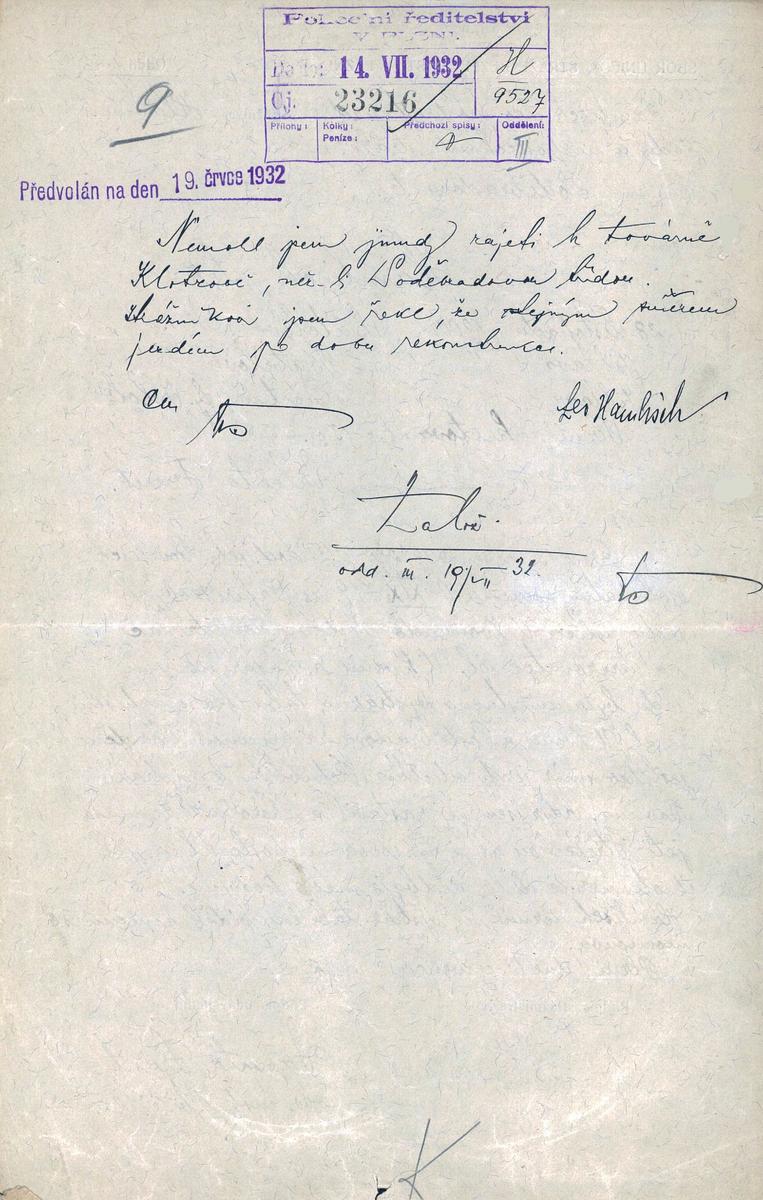 Policejní ředitelství
V PLZNI.
Došlo: 14. VII. 1932
H
9527
Čj. 23216
Přílohy: Kolky: Peníze: Předchozí spisy: Oddělení:
III
9
Předvolán na den 19. črvce 1932
Nemohl jsem jinudy zajeti k továrně
než-li Poděbradovou třídou.
Strážníkovi jsem řekl, že stejným směrem
jezdím po dobu rekonstrukce.
Leo Hamlisch
Založ.
odd. III. 19/VII 32.